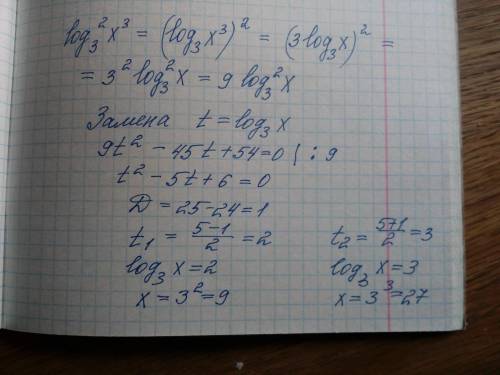 log₃²x³ = (log₃x³)² = (3log₃x)² =
= 3² log₃²x = 9 log₃²x
Замена t = log₃x
9t² - 45t + 54 = 0 | : 9
t² - 5t + 6 = 0
D = 25 - 24 = 1
t₁ = (5-1)/2 = 2 t₂ = (5+1)/2 = 3
log₃x = 2 log₃x = 3
x = 3² = 9 x = 3³ = 27